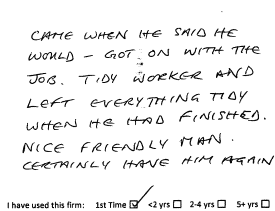 CAME WHEN HE SAID HE
WOULD - GOT ON WITH THE
JOB. TIDY WORKER AND
LEFT EVERYTHING TIDY
WHEN HE HAD FINISHED.
NICE FRIENDLY MAN.
CERTAINLY HAVE HIM AGAIN
I have used this firm: 1st Time ☑ <2 yrs ☐ 2-4 yrs ☐ 5+ yrs ☐